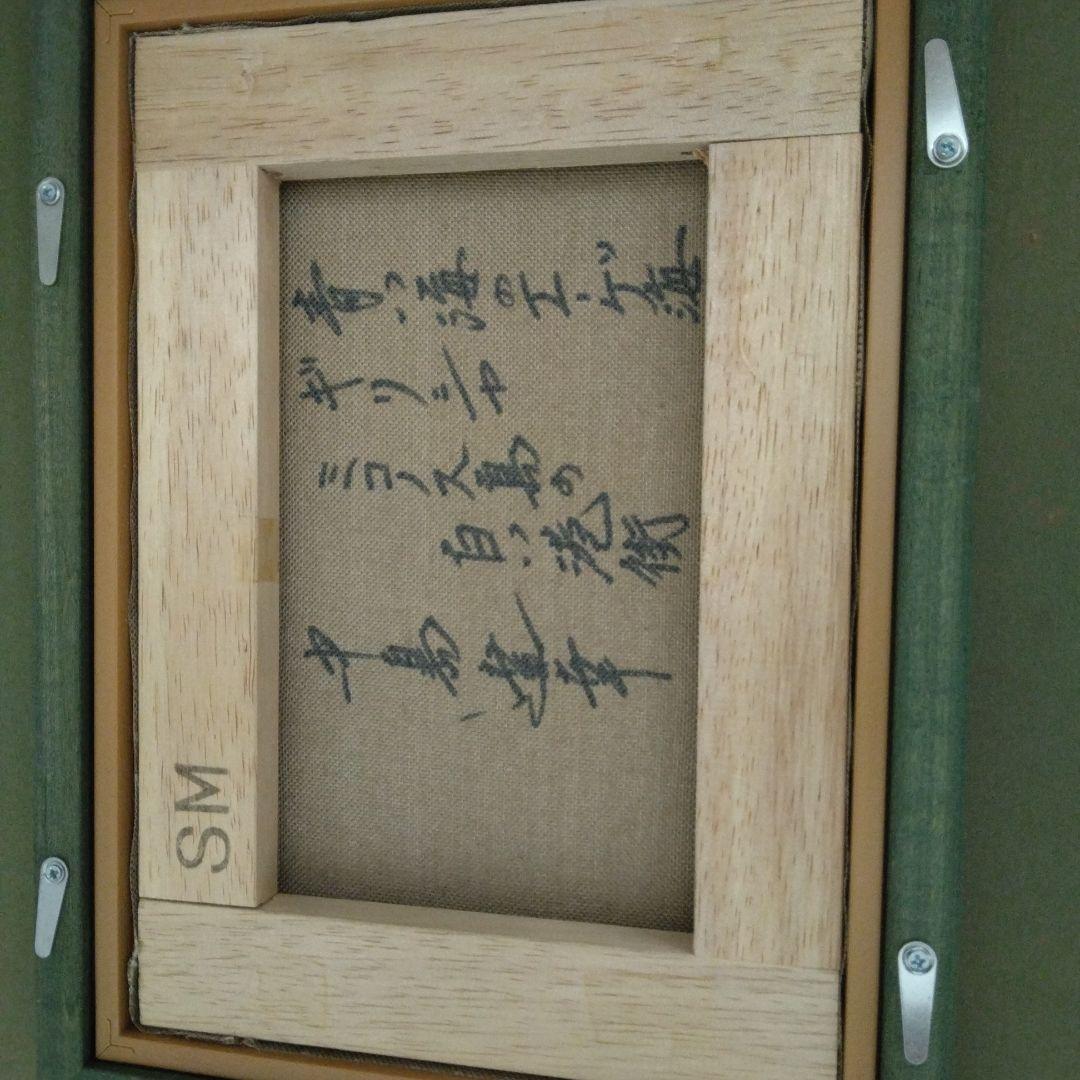 青い海のエーゲ海
ギリシャ
ミコノス島の
白い港街
中島達幸
SM